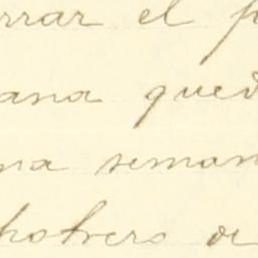 rrar el p
ana qued
na seman
hotrero de